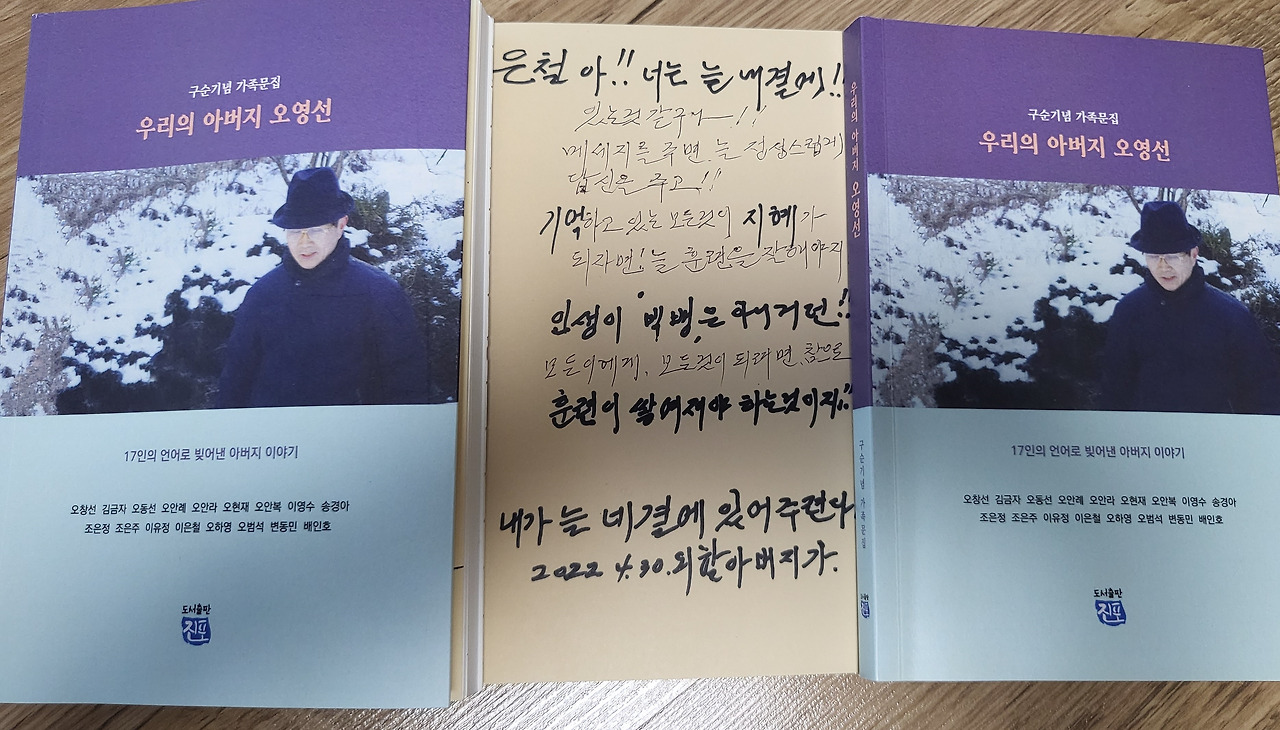 구순기념 가족문집
우리의 아버지 오영선
17인의 언어로 빚어낸 아버지 이야기
오창선 김금자 오동선 오안례 오안라 오현재 오안복 이영수 송경아
조은정 조은주 이유정 이은철 오하영 오범석 변동민 배인호
도서출판
진포
은철아!! 너는 늘 내곁에!!
있는것 같구나!!
메세지를 주면, 늘 정성스럽게
답신은 주고!!
기억하고 있는 모든것이 지혜가
되자면! 늘 훈련을 잘해야지
인생이 백병은 아니거던!!
모든이에게, 모든것이 되려면, 참으로
훈련이 쌓여져야 하는것이지!!
내가 늘 네곁에 있어주련다
2022 4.30. 외할아버지가.
우리의 아버지 오영선
구순기념 가족문집
진포
구순기념 가족문집
우리의 아버지 오영선
17인의 언어로 빚어낸 아버지 이야기
오창선 김금자 오동선 오안례 오안라 오현재 오안복 이영수 송경아
조은정 조은주 이유정 이은철 오하영 오범석 변동민 배인호
도서출판
진포